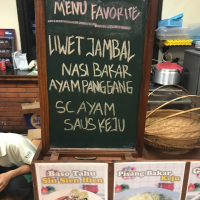 MENU FAVORITE
LIWET JAMBAL
NASI BAKAR
AYAM PANGGANG
SC AYAM
SAUS KEJU
Baso Tahu
Sio Sien Hien
Pisang Bakar
Keju